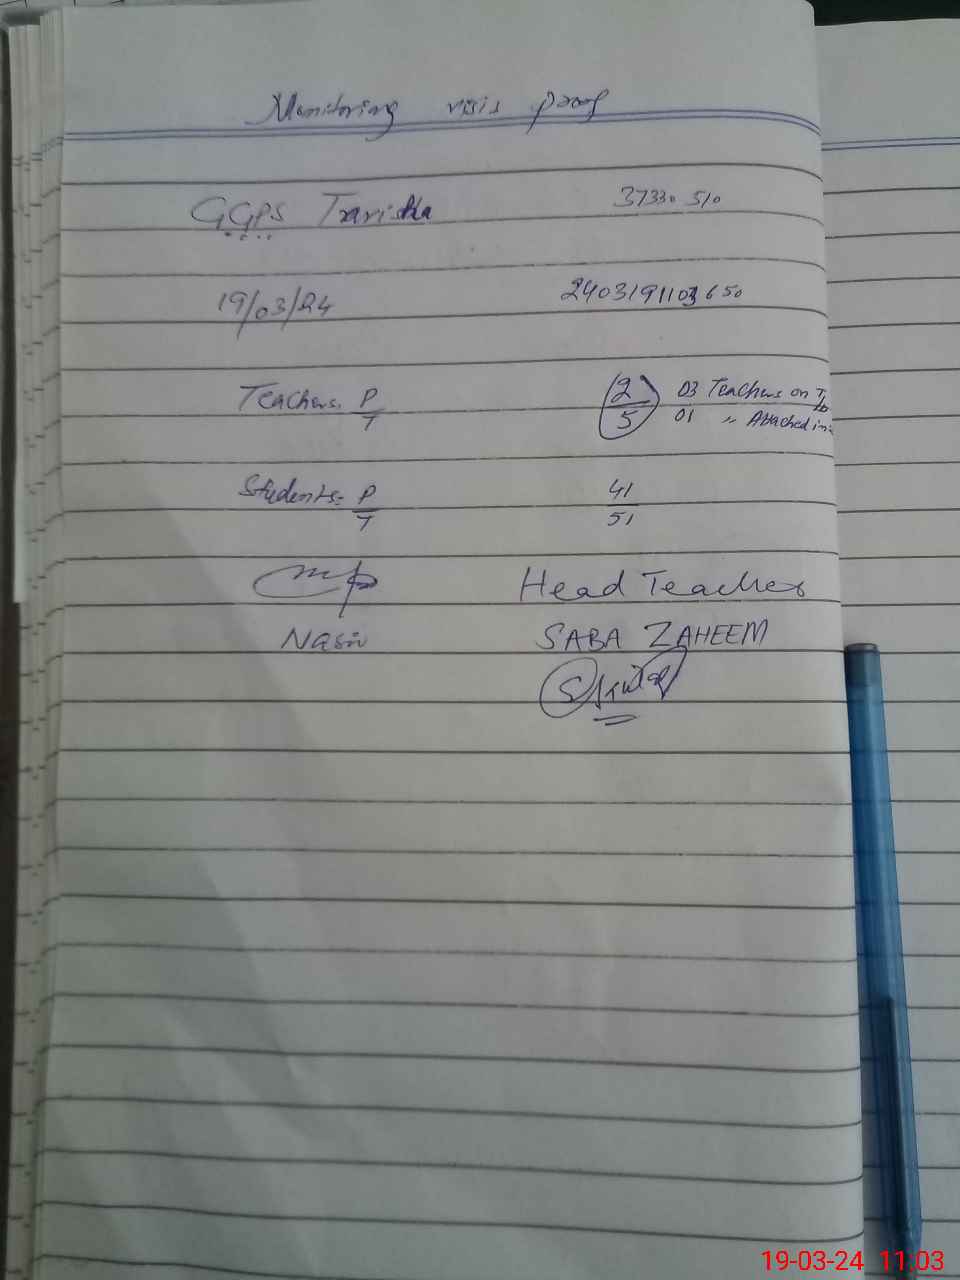 Monitoring visis proof
GGPS Taviska 37330 510
19/03/24 240319110 3650
Teachers. P/T 2/5 03 Teachers on T
01 " Attached in
Students= P/T 41/51
Head Teacher
Nasir SABA ZAHEEM
19-03-24 11:03